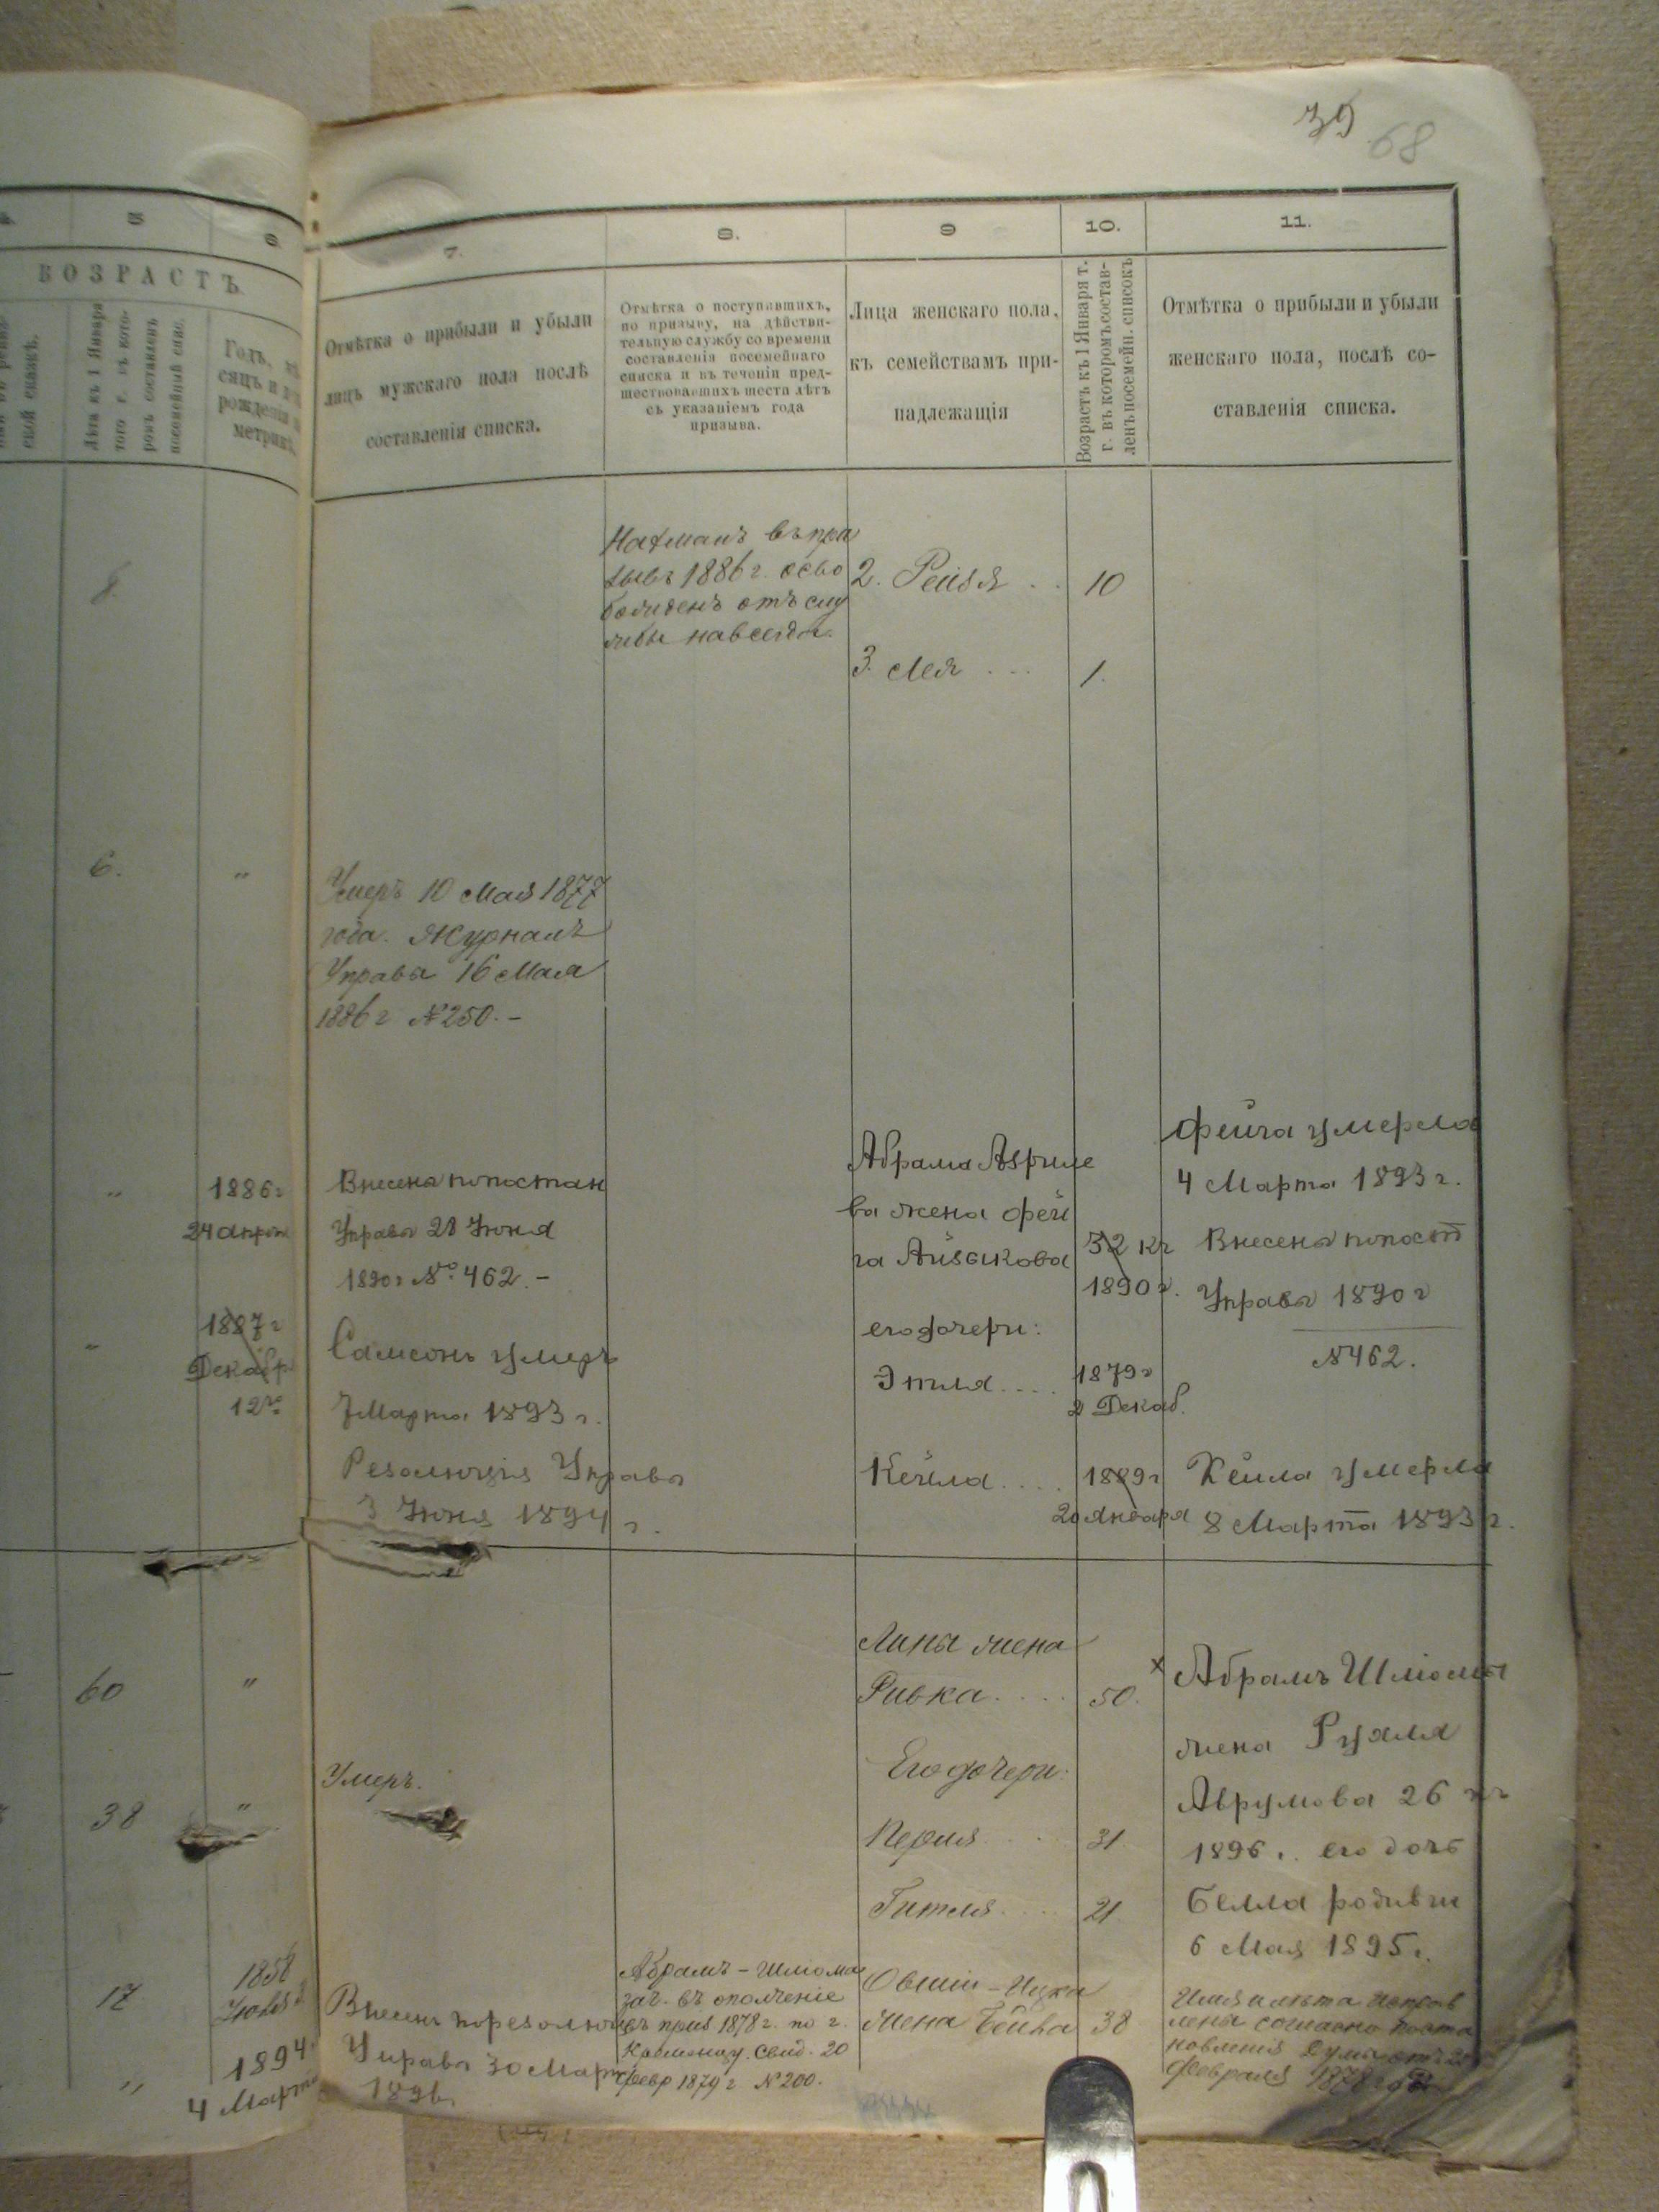 39
68
5
6.
7.
8.
9
10.
11.
ВОЗРАСТЪ.
ской сказкѣ.
Лѣта къ 1 Января
того г. въ кото-
ромъ составленъ
посемейный спис.
Годъ, мѣ
сяцъ и
рожденія
метрик.
Отмѣтка о прибыли и убыли
лицъ мужскаго пола послѣ
составленія списка.
Отмѣтка о поступавшихъ,
по призыву, на дѣйстви-
тельную службу со времени
составленія посемейнаго
списка и въ теченіи пред-
шествовавшихъ шести лѣтъ
съ указаніемъ года
призыва.
Лица женскаго пола,
къ семействамъ при-
надлежащія
Возрастъ къ 1 Января т.
г. въ которомъ состав-
ленъ посемейн. списокъ
Отмѣтка о прибыли и убыли
женскаго пола, послѣ со-
ставленія списка.
8
Нахманъ въ при
зывъ 1886 г. осво
божденъ отъ слу
жбы навсегда.
2. Рейзя . . 10
3. Лея . . . 1.
6. "
Умеръ 10 Мая 1877
года. Журналъ
Управы 16 Мая
1886 г №250.-
" 1886 г
24 апрѣл
Внесенъ по постан
Управы 28 Іюня
1890 г №. 462.-
" 1887 г
Декабр
12го
Самсонъ умеръ
7 Марта 1893 г.
Резолюція Управы
3 Іюня 1894 г.
Абрама Азриле
ва жена Фей
га Айзикова 32 къ
1890 г.
его дочери:
Этля.... 1879 г
2 Декаб.
Кейла.... 1889 г
20 Января
Фейга умерла
4 Марта 1893 г.
Внесена по пост
Управы 1890 г
№462.
Кейла умерла
8 Марта 1893 г.
60 "
38 "
Умеръ.
17 1856
1894
" 4 Марта
Внесенъ по резолюц
Управы 30 Март
1896
Абрамъ-Шлиома
зач. въ ополченіе
въ приз 1878 г. по г.
Кременцу. Свид. 20
Февр 1879 г №200.
жена
Ривка.... 50.
Его дочери:
Перля . . . 31.
Гитля.... 21
Овшіи-Ицка
жена Бейла 38
х Абрамъ Шліомы
жена Рухля
Аврумова 26 къ
1896 г. его дочь
Белла родивш
6 Мая 1895 г.
Имя и лѣта исправ
лены согласно поста
новленія Думы отъ
Февраля 1878 г.